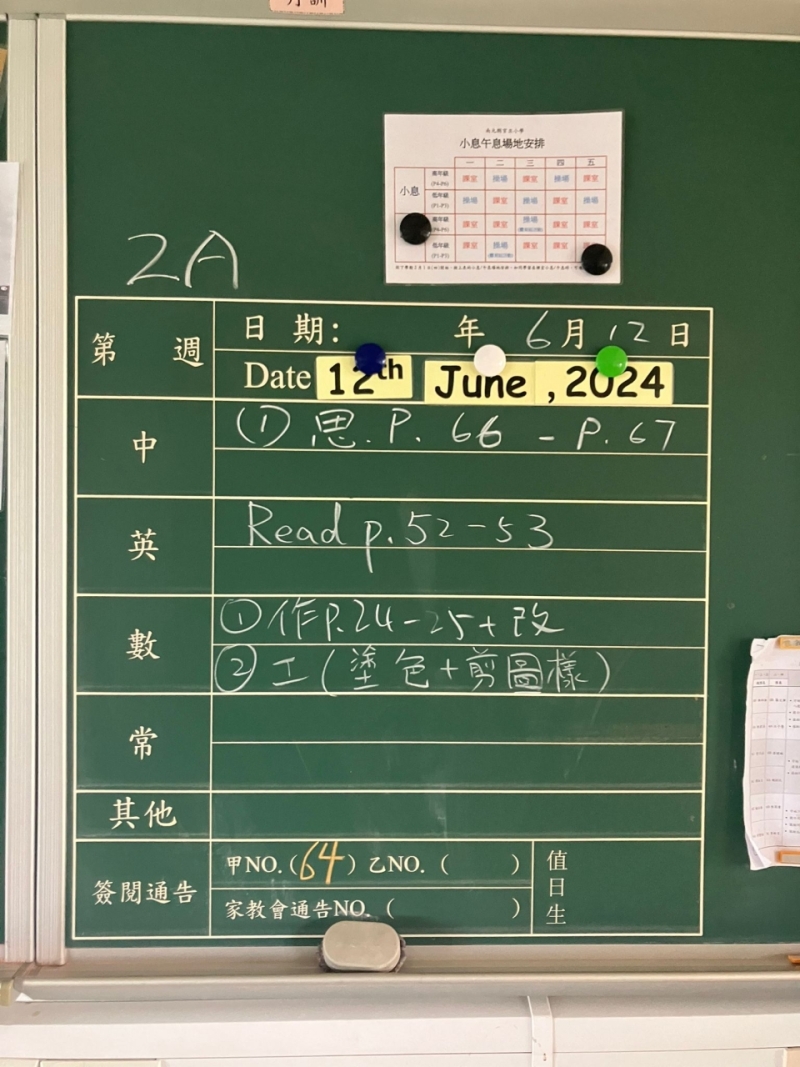 小息午息場地安排
一 二 三 四 五
小息
高年級 (P4-P6) 課室 操場 課室 操場 課室
低年級 (P1-P3) 操場 課室 操場 課室 操場
高年級 課室 課室 操場 課室 課室
低年級 課室 操場 課室 課室
2A
第 週
日 期: 年 6月12日
Date 12th June , 2024
中
(1) 思.P. 66 - P. 67
英
Read p.52-53
數
①作P.24-25+改
②工(塗色+剪圖樣)
常
其他
簽閱通告
甲NO.(64) 乙NO.( )
家教會通告NO.( )
值日生